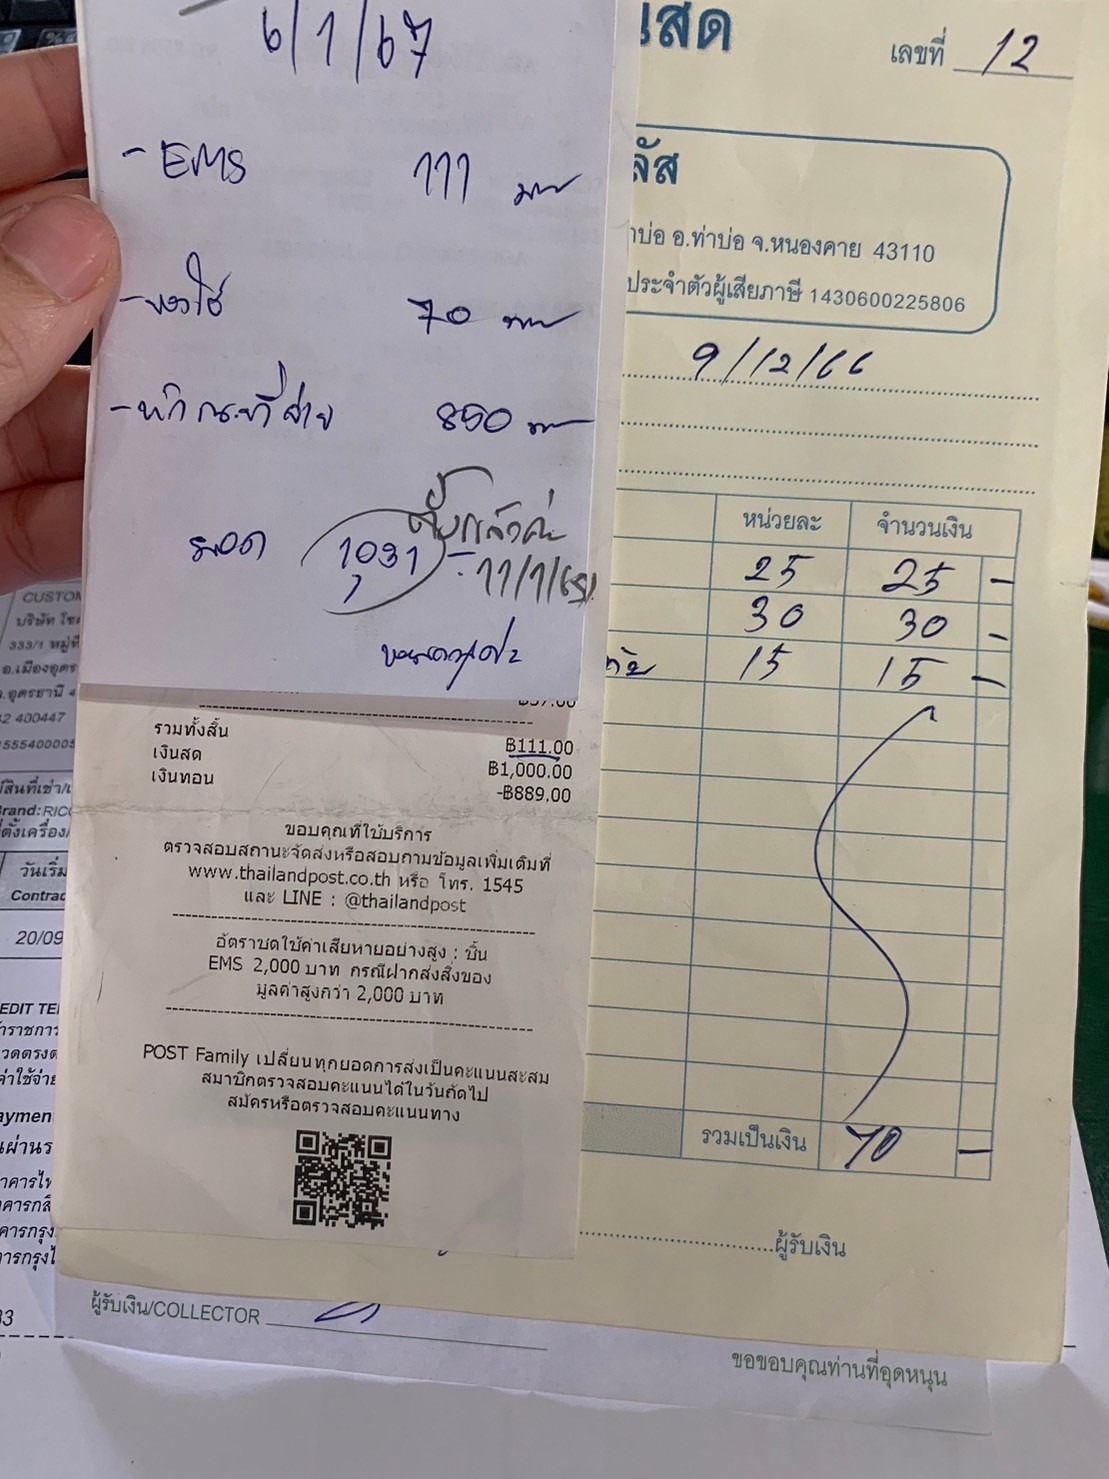 6/1/67
- EMS 111 บาท
- ของใช้ 70 บาท
850 บาท
ยอด 1,031
11/1/67
฿37.00
รวมทั้งสิ้น ฿111.00
เงินสด ฿1,000.00
เงินทอน -฿889.00
ขอบคุณที่ใช้บริการ
ตรวจสอบสถานะจัดส่งหรือสอบถามข้อมูลเพิ่มเติมที่
www.thailandpost.co.th หรือ โทร. 1545
และ LINE : @thailandpost
อัตราชดใช้ค่าเสียหายอย่างสูง : ชิ้น
EMS 2,000 บาท กรณีฝากส่งสิ่งของ
มูลค่าสูงกว่า 2,000 บาท
POST Family เปลี่ยนทุกยอดการส่งเป็นคะแนนสะสม
สมาชิกตรวจสอบคะแนนได้ในวันถัดไป
สมัครหรือตรวจสอบคะแนนทาง
เงสด
เลขที่ 12
ลัส
าบ่อ อ.ท่าบ่อ จ.หนองคาย 43110
ประจำตัวผู้เสียภาษี 1430600225806
9/12/66
หน่วยละ จำนวนเงิน
25 25 -
30 30 -
15 15 -
รวมเป็นเงิน 70 -
ผู้รับเงิน
CUSTOM
บริษัท โช
333/1 หมู่ที่
อ.เมืองอุดร
.อุดรธานี 4
42 400447
55540000
Brand: RICO
วันเริ่ม
Contrac
20/09
EDIT TE
ayment
ผู้รับเงิน/COLLECTOR
33
ขอขอบคุณท่านที่อุดหนุน